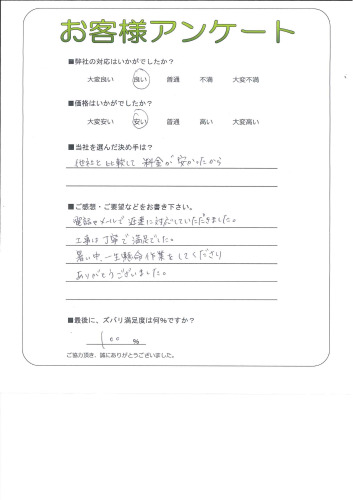 お客様アンケート
■弊社の対応はいかがでしたか？
大変良い 良い 普通 不満 大変不満
■価格はいかがでしたか？
大変安い 安い 普通 高い 大変高い
■当社を選んだ決め手は？
他社と比較して料金が安かったから
■ご感想・ご要望などをお書き下さい。
電話やメールで迅速に対応していただきました。
工事は丁寧で満足でした。
暑い中、一生懸命作業をしてくださり
ありがとうございました。
■最後に、ズバリ満足度は何％ですか？
100 %
ご協力頂き、誠にありがとうございました。